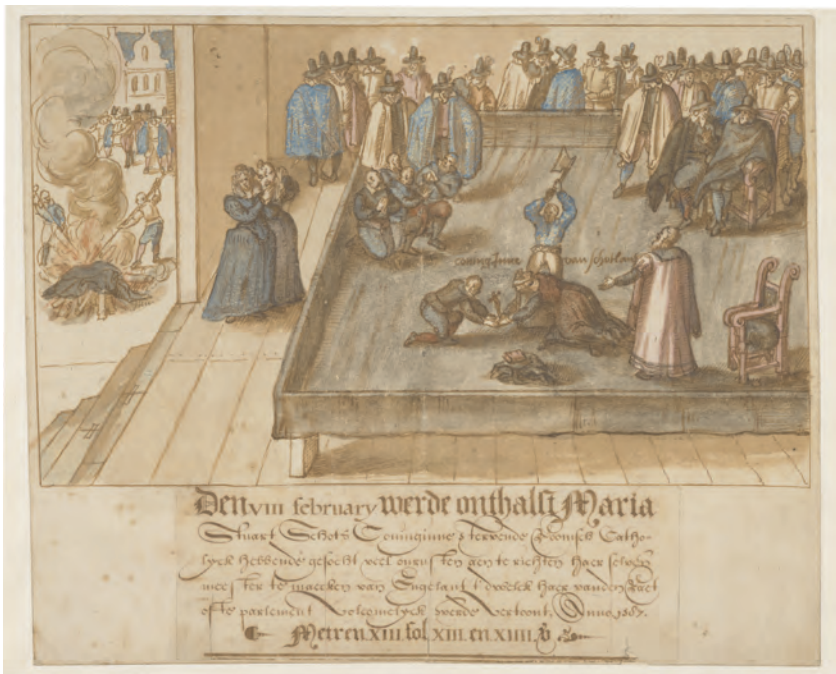 van schotlant
Den VIII february werde onthalst Maria
Stuart Schots Coninginne stervende Roomsch Catho-
lyck hebbende gesocht veel onrusten aen te richten haer selven
meester te maecken van Engelant t'dwelck haer vanden Raet
ofte parlement volcomelyck werde vertoont, Anno 1587.
Metren XIII fol XIII en XIIII